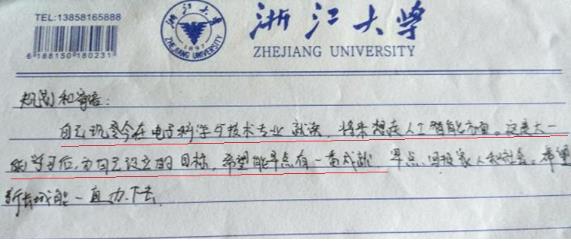 TEL:13858165888
浙江大学
ZHEJIANG UNIVERSITY
1897
6 188150 180231
规划和寄语:
自己现如今在电子科学与技术专业就读,将来想走人工智能方面。这是大一
的学习后,为自己设立的目标,希望能早点有一番成就 早点回报家人和社会。希望
新长城能一直办下去